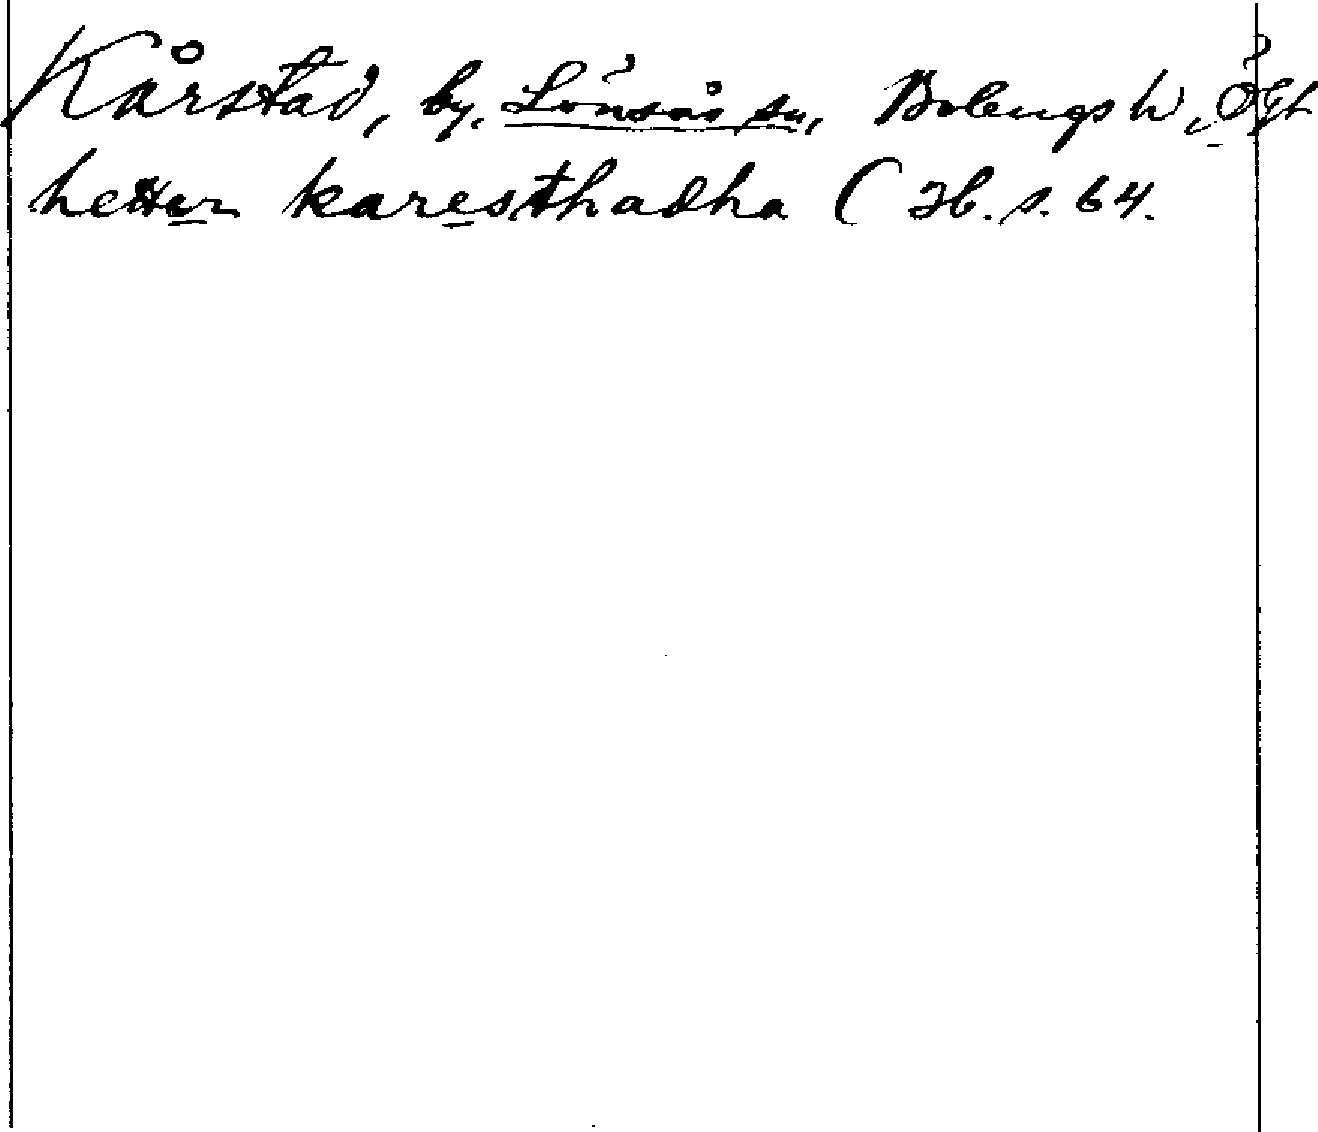 Kårstad, by, Lönsås sn, Bobergs h, Ögt
hetter karesthadha ( Ib. s. 64.